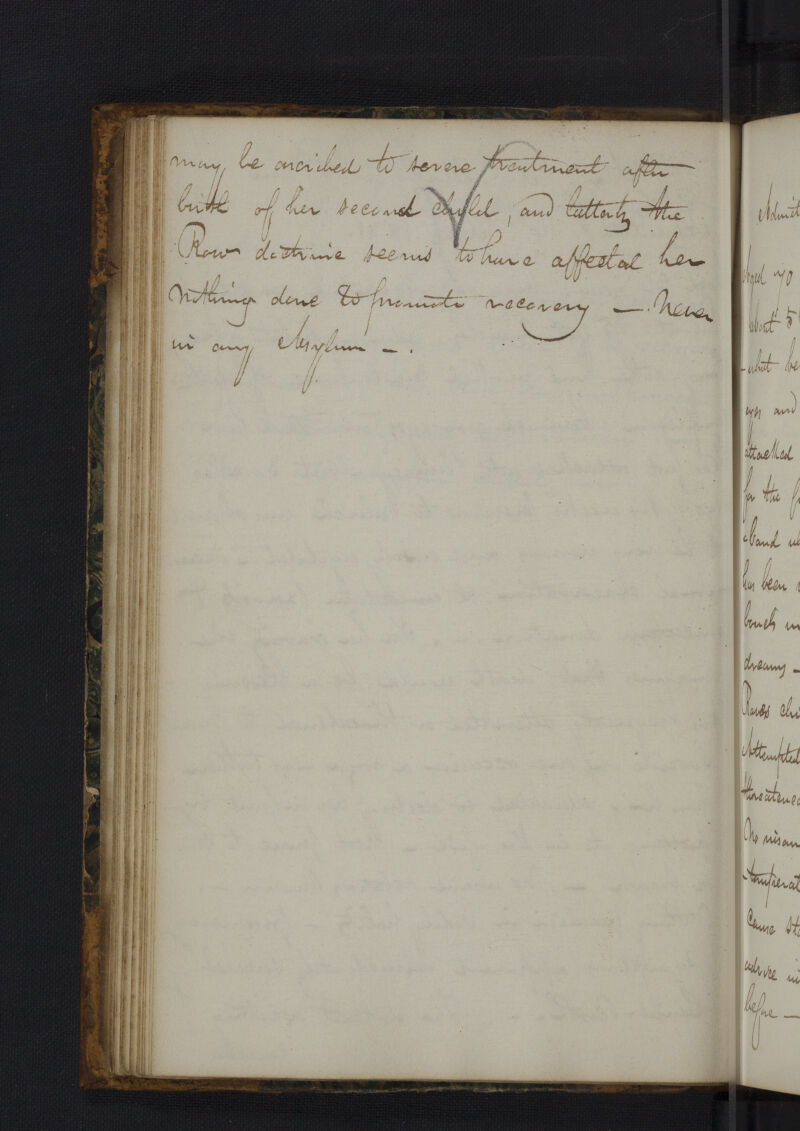 may be ascribed to severe treatment after
birth of her second child, and latterly the
Row doctrine seems to have affected her
Nothing done to promote recovery — Never
in any Asylum —.
Admit
Aged 70
about 5
eyes and
attacked
for the
has been
dreams —
Raves
Attempted
threatened
No
Cause
advice in
before —